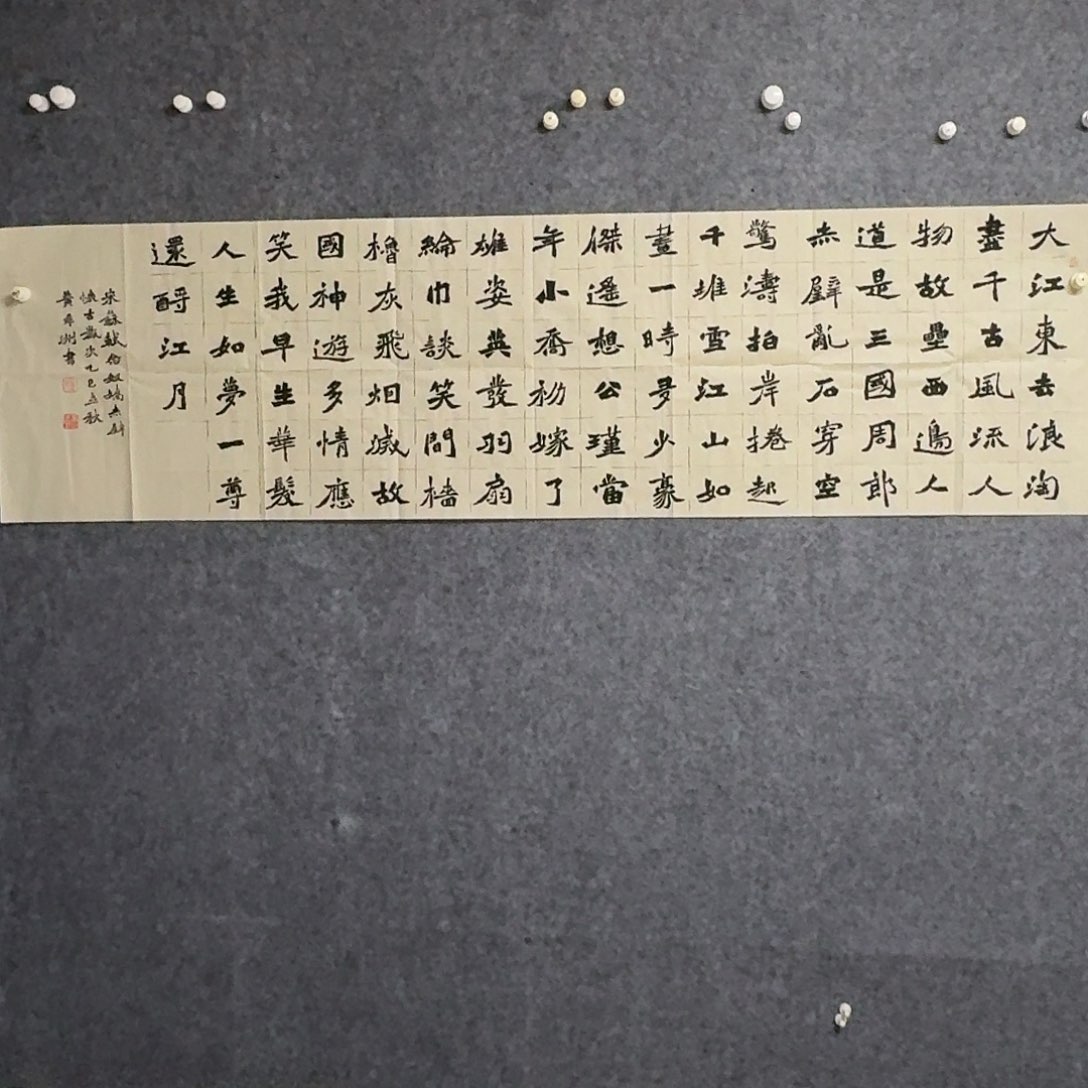 大江東去浪淘
盡千古風流人
物故壘西邊人
道是三國周郎
赤壁亂石穿空
驚濤拍岸捲起
千堆雪江山如
畫一時多少豪
傑遙想公瑾當
年小喬初嫁了
雄姿英發羽扇
綸巾談笑間檣
櫓灰飛烟滅故
國神遊多情應
笑我早生華髮
人生如夢一尊
還酹江月
宋蘇軾念奴嬌赤壁
懷古歲次乙巳秋
黃洲書